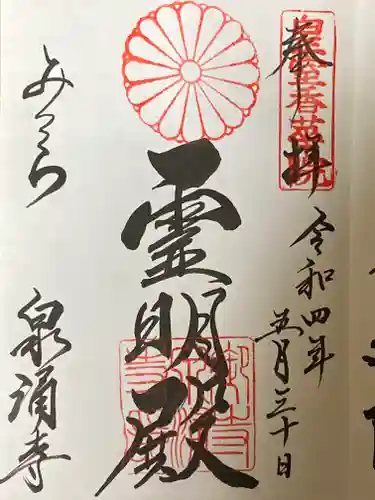 奉拝
皇室香華院
令和四年
五月三十日
霊明殿
みてら
泉涌寺